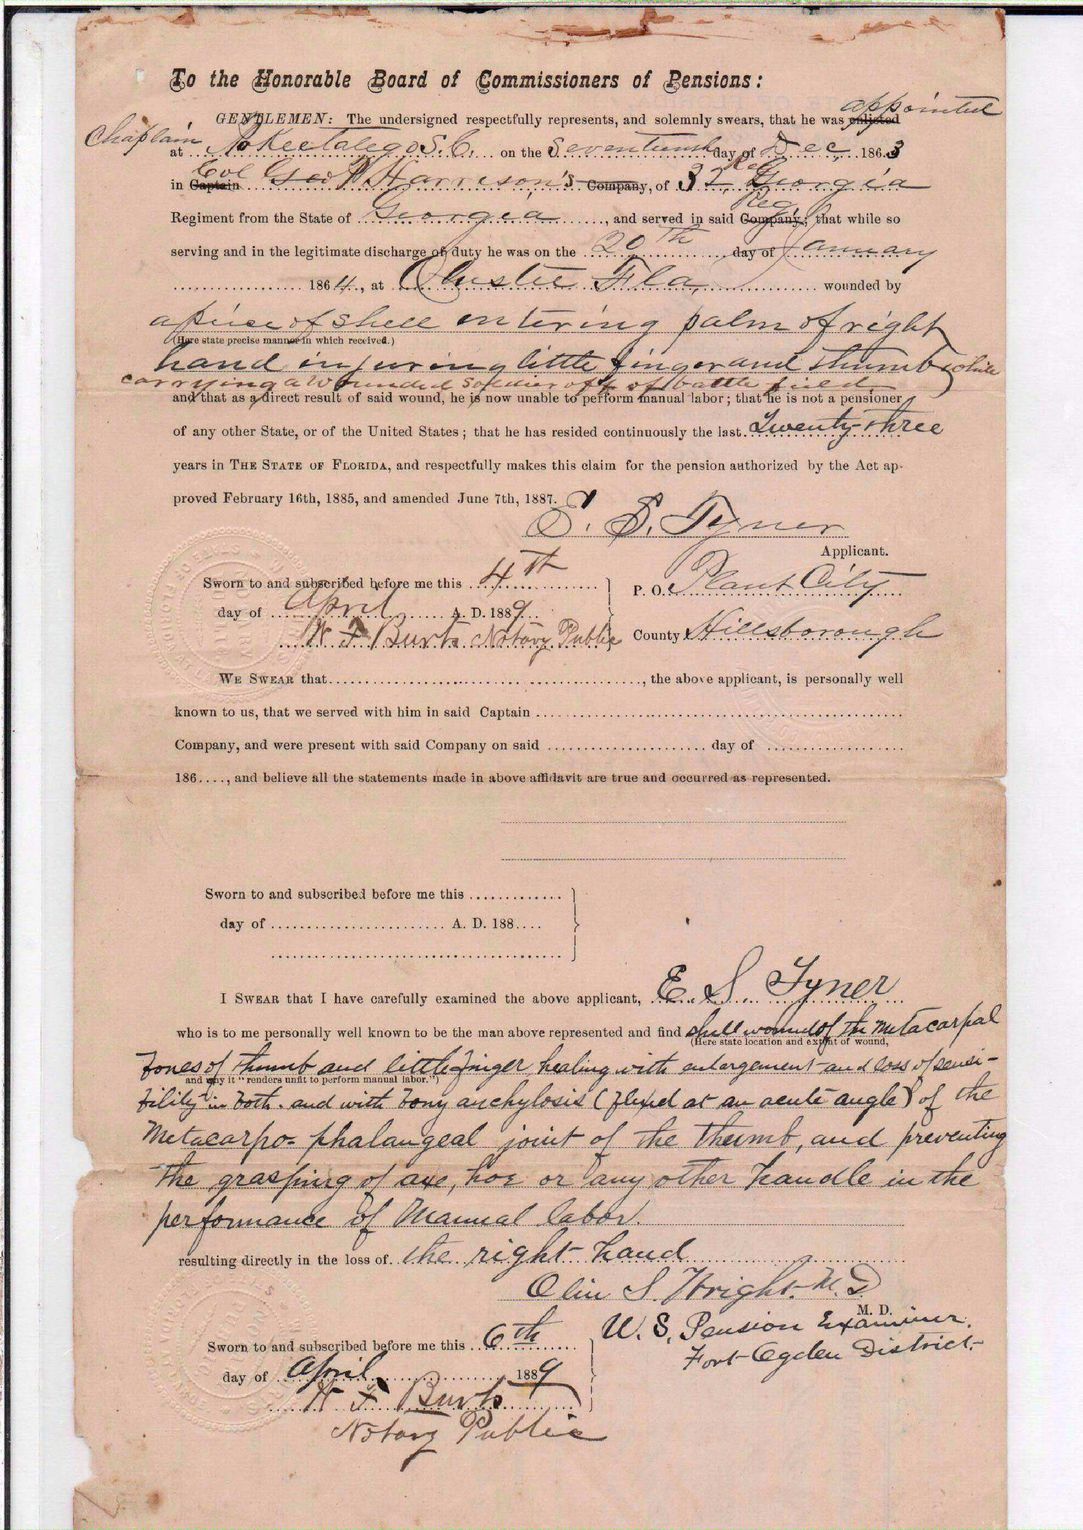 To the Honorable Board of Commissioners of Pensions:
appointed
GENTLEMEN: The undersigned respectfully represents, and solemnly swears, that he was enlisted
Chaplain
at Pokeetalego S.C. on the Seventeenth day of Dec, 1863
Col Reg
in Captain Geo P Harrison's Company, of 32 Georgia
Reg
Regiment from the State of Georgia, and served in said Company; that while so
serving and in the legitimate discharge of duty he was on the 20th day of January
1864, at Olustee Fla, wounded by
a piece of shell entering palm of right
(Here state precise manner in which received.)
hand injuring little finger and thumb while
carrying a wounded soldier off of battle field
and that as a direct result of said wound, he is now unable to perform manual labor; that he is not a pensioner
of any other State, or of the United States; that he has resided continuously the last Twenty three
years in THE STATE OF FLORIDA, and respectfully makes this claim for the pension authorized by the Act ap-
proved February 16th, 1885, and amended June 7th, 1887.
E. S. Tyner
Applicant.
Sworn to and subscribed before me this 4th
P. O. Plant City
day of April A. D. 1889
W F Burts Notary Public
County Hillsborough
WE SWEAR that, the above applicant, is personally well
known to us, that we served with him in said Captain
Company, and were present with said Company on said day of
186...., and believe all the statements made in above affidavit are true and occurred as represented.
Sworn to and subscribed before me this
day of A. D. 188....
I SWEAR that I have carefully examined the above applicant, E. S. Tyner
who is to me personally well known to be the man above represented and find shell wound of the metacarpal
(Here state location and extent of wound,
bones of thumb and little finger, healing with enlargement and loss of sensi-
and why it "renders unfit to perform manual labor.")
bility in both. and with bony anchylosis (flexed at an acute angle) of the
Metacarpo-phalangeal joint of the thumb, and preventing
the grasping of axe, hoe or any other handle in the
performance of manual labor.
resulting directly in the loss of the right hand
Olin S. Wright. M. D
M. D.
U. S. Pension Examiner.
Fort Ogden District.
Sworn to and subscribed before me this 6th
day of April 1889
W F Burts
Notary Public